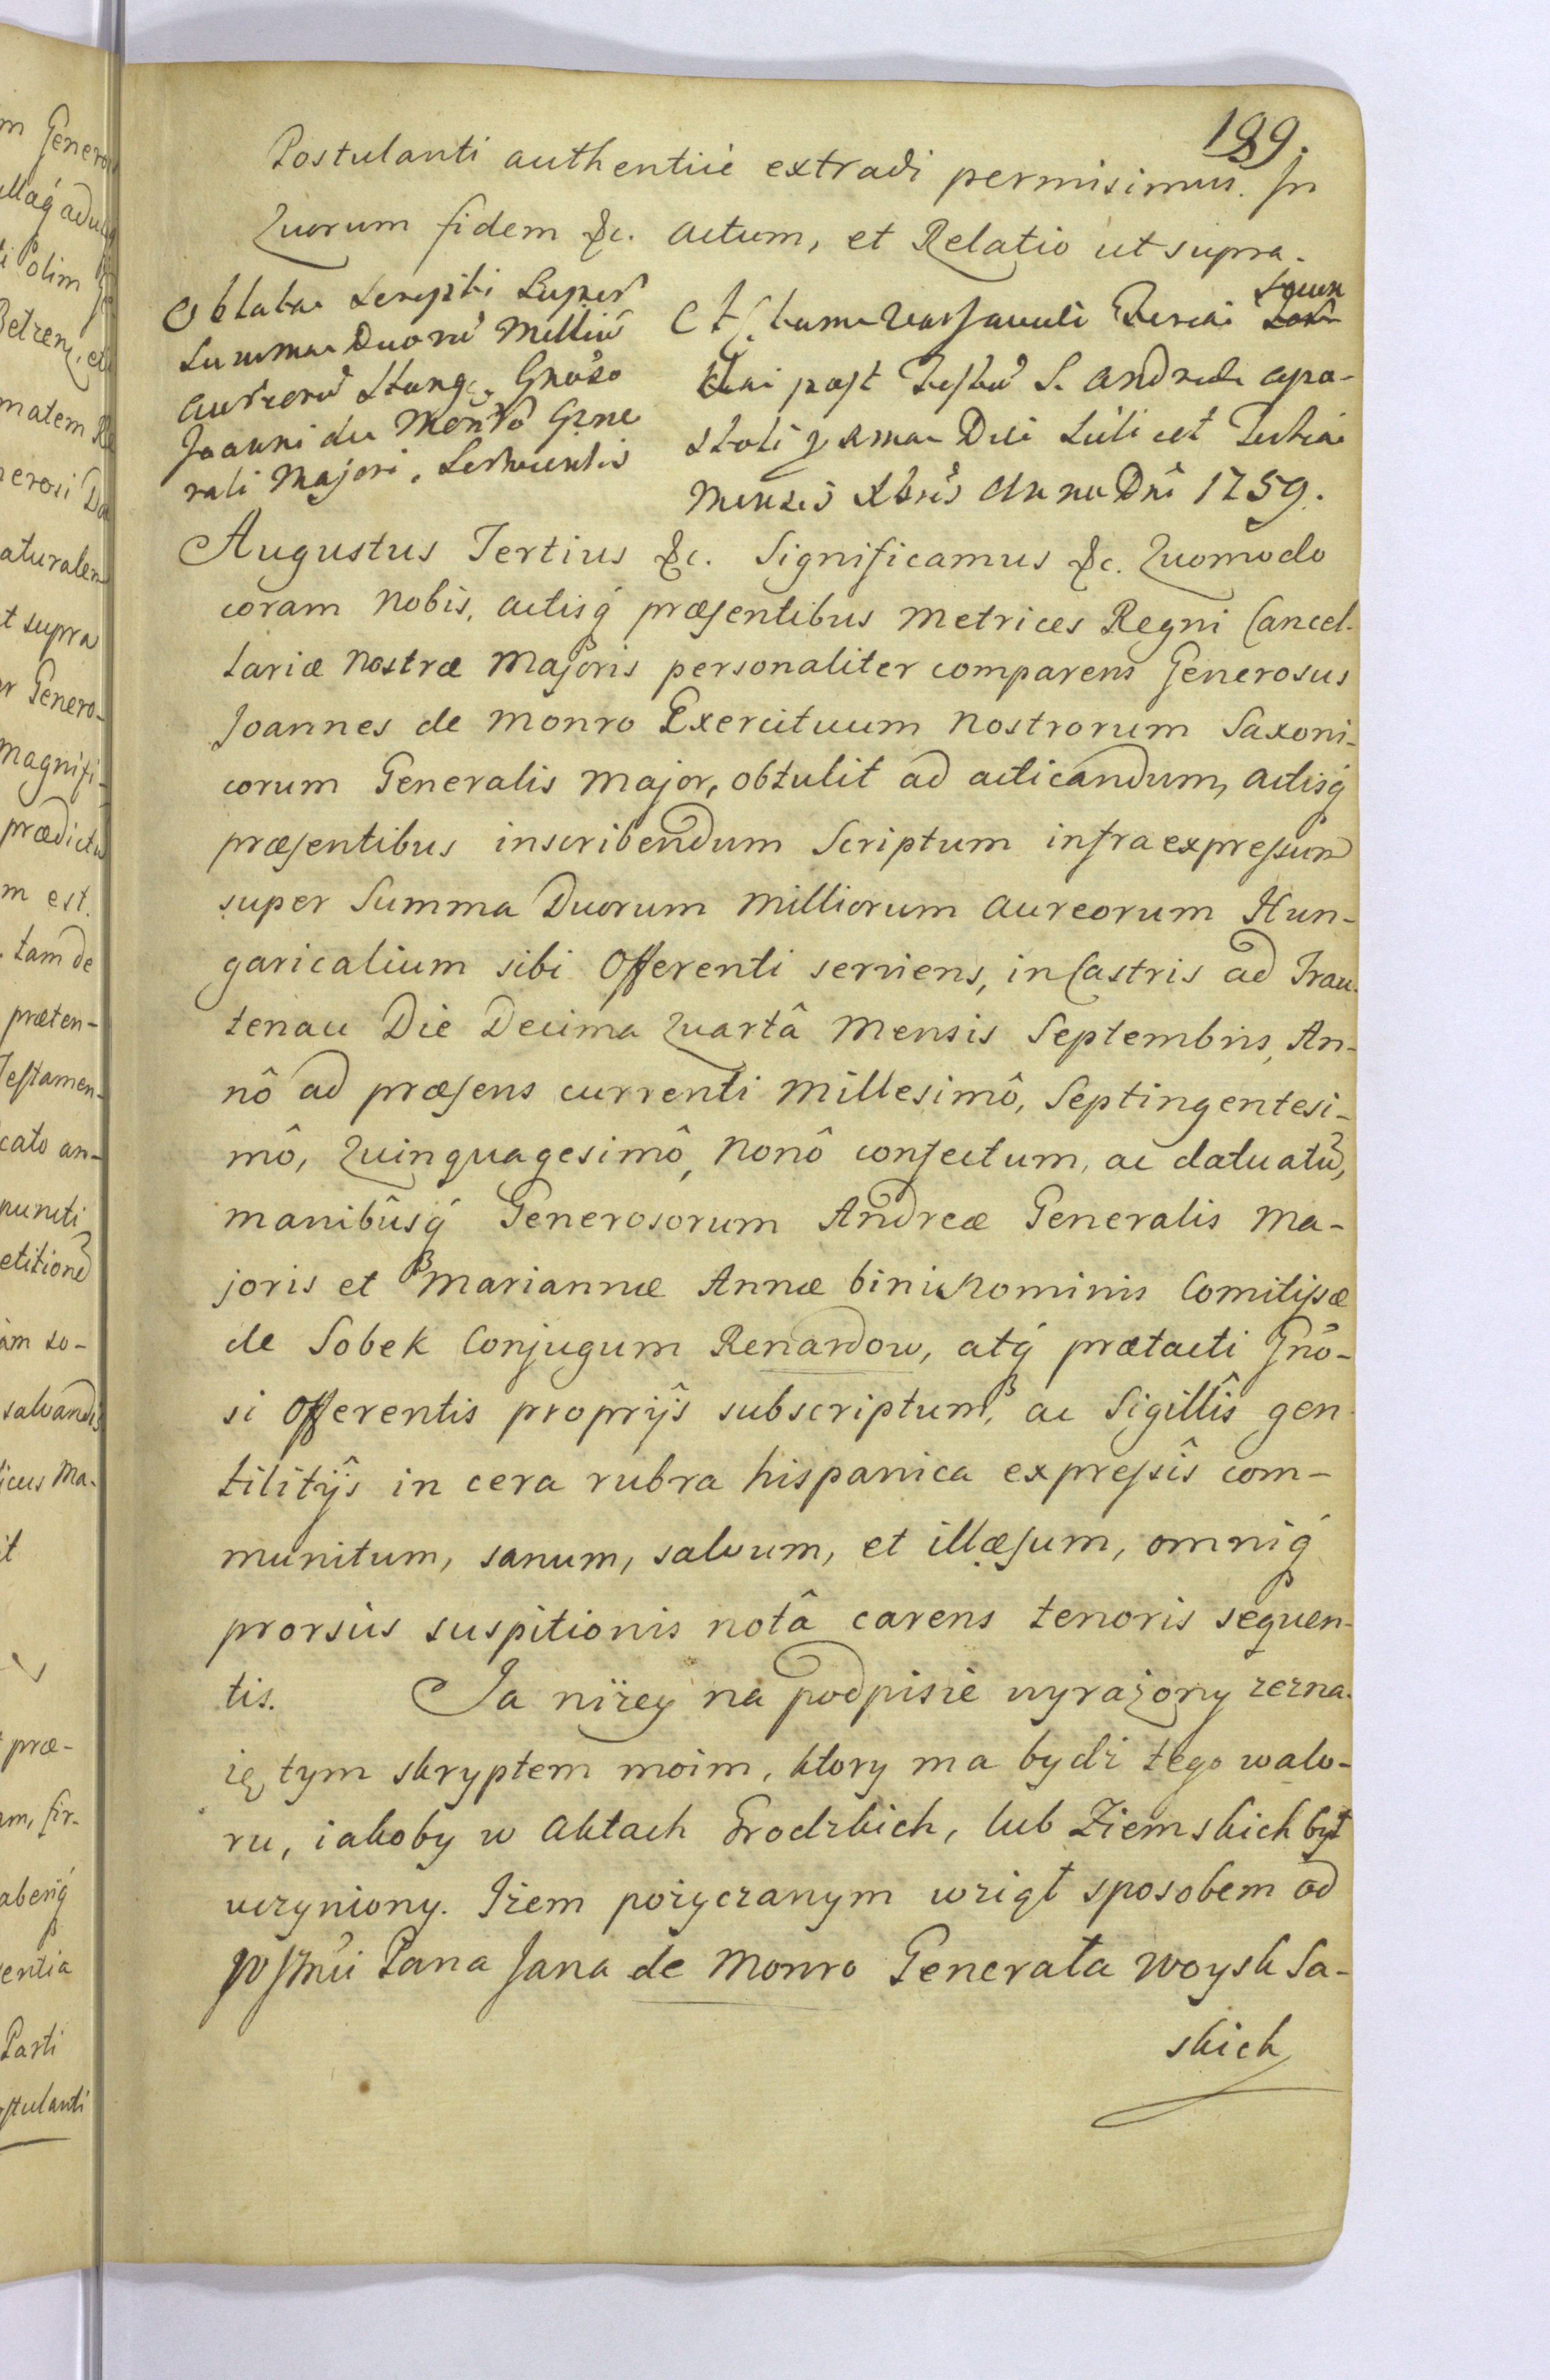 189.
Postulanti authenticè extradi permisimus. Jn
Quorum fidem &c. Actum, et Relatio ut supra.
Oblatae Scripti Super
Summae Duorũ Milliũ
Aureorũ Hung: Gnoso
Joanni de Monro Gene
rali Majori, Servientis
Actum Varsaviae Feria Secun
da post Festũ S. Andreae Apo-
stoli proxima Die scilicet Tertia
Mensis Xbris Anno Dni 1759.
Augustus Tertius &c. Significamus &c. Quomodo
coram Nobis, Actisq́ præsentibus Metrices Regni Cancel-
lariæ Nostræ Majoris personaliter comparens Generosus
Joannes de Monro Exercituum Nostrorum Saxoni-
corum Generalis Major, obtulit ad acticandum, Actisq́
præsentibus inscribendum Scriptum infraexpressum
super Summa Duorum Milliorum Aureorum Hun-
garicalium sibi Offerenti serviens, in Castris ad Trau-
tenau Die Decima Quartâ Mensis Septembris, An-
nô ad præsens currenti Millesimô, Septingentesi-
mô, Quinquagesimô, Nonô confectum, ac datuatũ,
manibûsq́ Generosorum Andreæ Generalis Ma-
joris et Mariannæ Annæ bini Nominis Comitissæ
de Sobek Conjugum Renardow, atq́ prætacti Gnõ-
si Offerentis proprijs subscriptum, ac Sigillîs gen-
tilitijs in cera rubra hispanica expressîs com-
munitum, sanum, salvum, et illæsum, omniq́
prorsùs suspitionis notâ carens tenoris sequen-
tis. Ja niżey na podpisie wyrażony zezna-
ię tym skryptem moim, ktory ma bydź tego walo-
ru, iakoby w Aktach Grodzkich, lub Ziemskich był
uczyniony. Jżem pożyczanym wziął sposobem od
Pana Jana de Monro Generała Woysk Sa-
skich